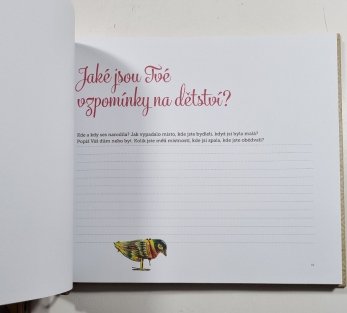 Jaké jsou Tvé
vzpomínky na dětství?
Kde a kdy ses narodila? Jak vypadalo místo, kde jste bydleli, když jsi byla malá?
Popiš Váš dům nebo byt. Kolik jste měli místností, kde jsi spala, kde jste obědvali?